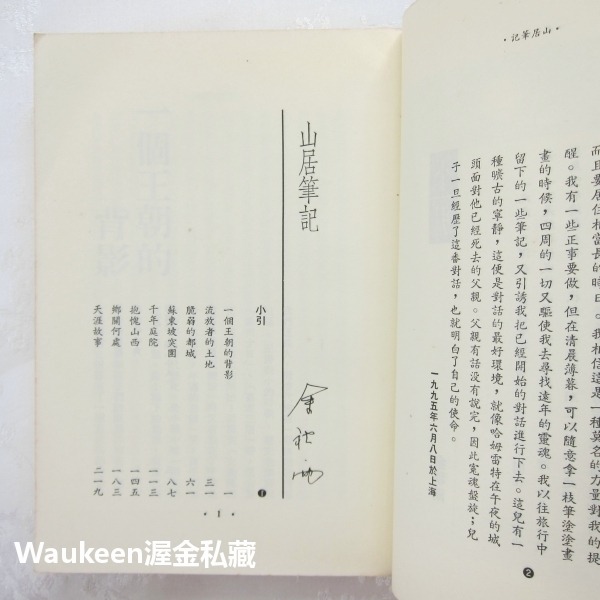 山居筆記
小引
一個王朝的背影 一
流放者的土地 三一
脆弱的都城 六一
蘇東坡突圍 八七
千年庭院 一一三
抱愧山西 一四五
鄉關何處 一八三
天涯故事 二一九
余秋雨
1
·1·
·山居筆記·
而且要居住相當長的時日。我相信這是一種莫名的力量對我的提
醒。我有一些正事要做，但在清晨薄暮，可以隨意拿一枝筆塗塗畫
畫的時候，四周的一切又驅使我去尋找遠年的靈魂。我以往旅行中
留下的一些筆記，又引誘我把已經開始的對話進行下去。這兒有一
種曠古的寧靜，這便是對話的最好環境，就像哈姆雷特在午夜的城
頭面對他已經死去的父親。父親有話沒有說完，因此冤魂盤旋；兒
子一旦經歷了這番對話，也就明白了自己的使命。
一九九五年六月八日於上海
2
Waukeen渥金私藏